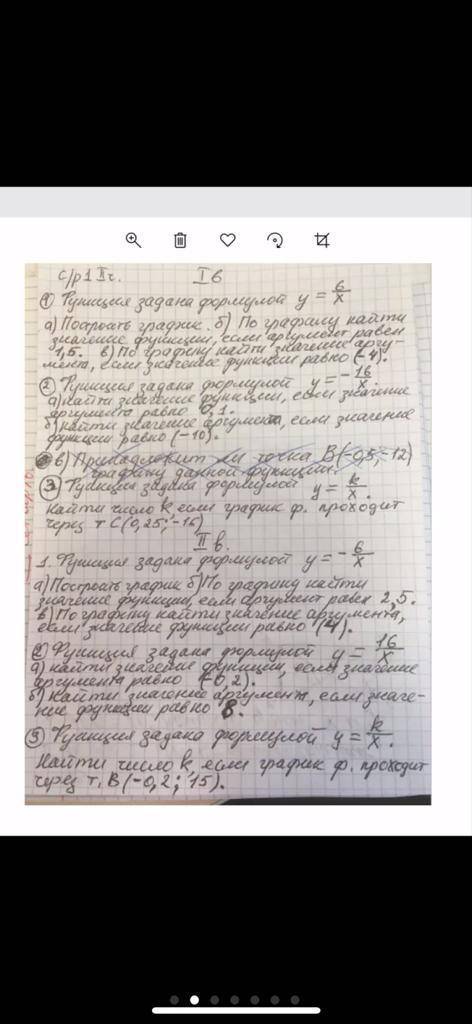 с/р 1 II ч. I в
① Функция задана формулой y = 6/x
а) Построить график. б) По графику найти
значение функции, если аргумент равен
1,5. в) По графику найти значение аргу-
мента, если значение функции равно (-4).
② Функция задана формулой y = -16/x.
а) найти значение функции, если значение
аргумента равно 0,1.
б) найти значение аргумента, если значение
функции равно (-10).
в) Принадлежит ли точка B(-0,5; -12)
графику данной функции.
③ Функция задана формулой y = k/x.
Найти число k, если график ф. проходит
через т C (0,25; -16)
II в.
1. Функция задана формулой y = -6/x
а) Построить график б) По графику найти
значение функции, если аргумент равен 2,5.
в) По графику найти значение аргумента,
если значение функции равно (4).
② Функция задана формулой y = 16/x
а) найти значение функции, если значение
аргумента равно (-0,2).
б) Найти значение аргумента, если значе-
ние функции равно 8.
③ Функция задана формулой y = k/x.
Найти число k, если график ф. проходит
через т. B (-0,2; 15).